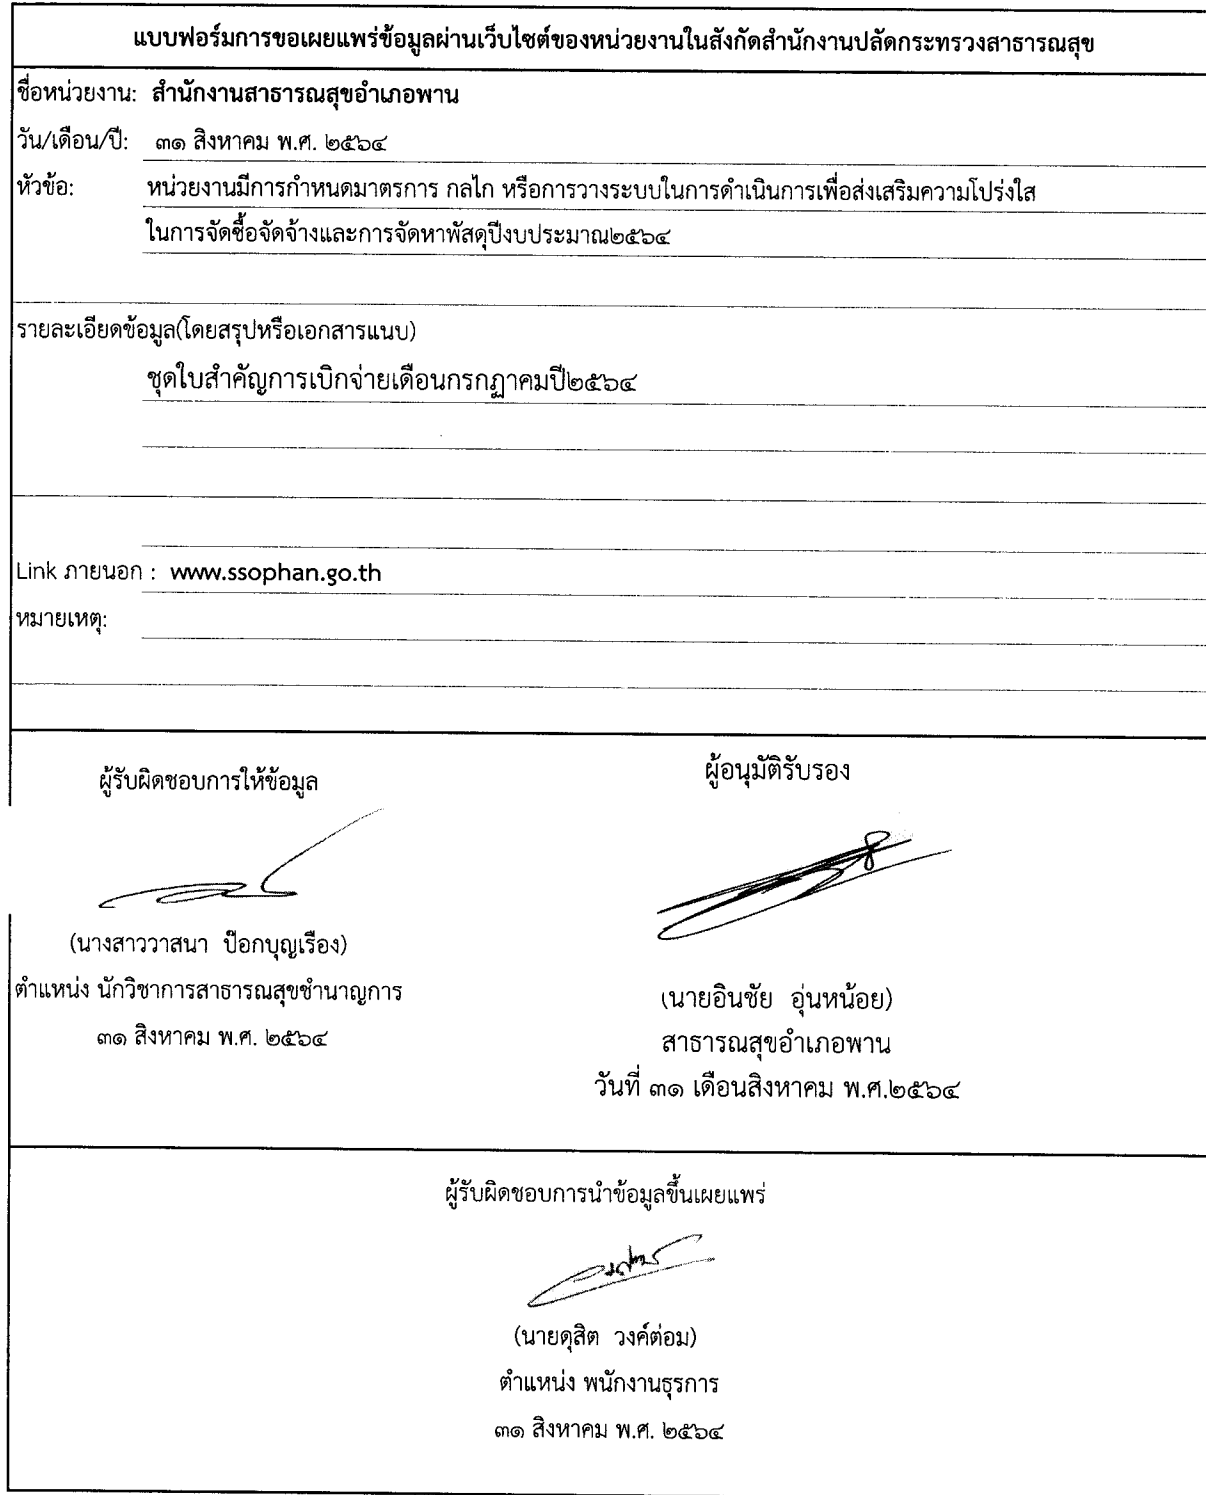 แบบฟอร์มการขอเผยแพร่ข้อมูลผ่านเว็บไซต์ของหน่วยงานในสังกัดสำนักงานปลัดกระทรวงสาธารณสุข
ชื่อหน่วยงาน: สำนักงานสาธารณสุขอำเภอพาน
วัน/เดือน/ปี: ๓๑ สิงหาคม พ.ศ. ๒๕๖๔
หัวข้อ: หน่วยงานมีการกำหนดมาตรการ กลไก หรือการวางระบบในการดำเนินการเพื่อส่งเสริมความโปร่งใส
ในการจัดซื้อจัดจ้างและการจัดหาพัสดุปีงบประมาณ๒๕๖๔
รายละเอียดข้อมูล(โดยสรุปหรือเอกสารแนบ)
ชุดใบสำคัญการเบิกจ่ายเดือนกรกฎาคมปี๒๕๖๔
Link ภายนอก : www.ssophan.go.th
หมายเหตุ:
ผู้รับผิดชอบการให้ข้อมูล
(นางสาววาสนา ป๊อกบุญเรือง)
ตำแหน่ง นักวิชาการสาธารณสุขชำนาญการ
๓๑ สิงหาคม พ.ศ. ๒๕๖๔
ผู้อนุมัติรับรอง
(นายอินชัย อุ่นหน้อย)
สาธารณสุขอำเภอพาน
วันที่ ๓๑ เดือนสิงหาคม พ.ศ.๒๕๖๔
ผู้รับผิดชอบการนำข้อมูลขึ้นเผยแพร่
(นายดุสิต วงค์ต่อม)
ตำแหน่ง พนักงานธุรการ
๓๑ สิงหาคม พ.ศ. ๒๕๖๔